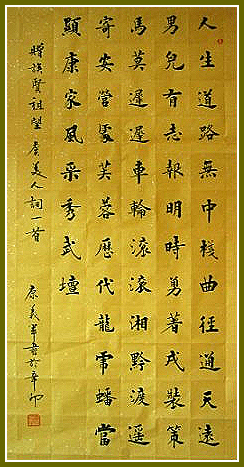 人生道路無中棧曲徑通天遠
男兒有志報明時勇著戎裝策
馬莫遲遲車輪滾滾湘黔渡遥
寄安營處芙蓉歷代龍常蟠當
顯康家風采秀武壇
贈族賢祖望虞美人詞一首 康義書於辛卯